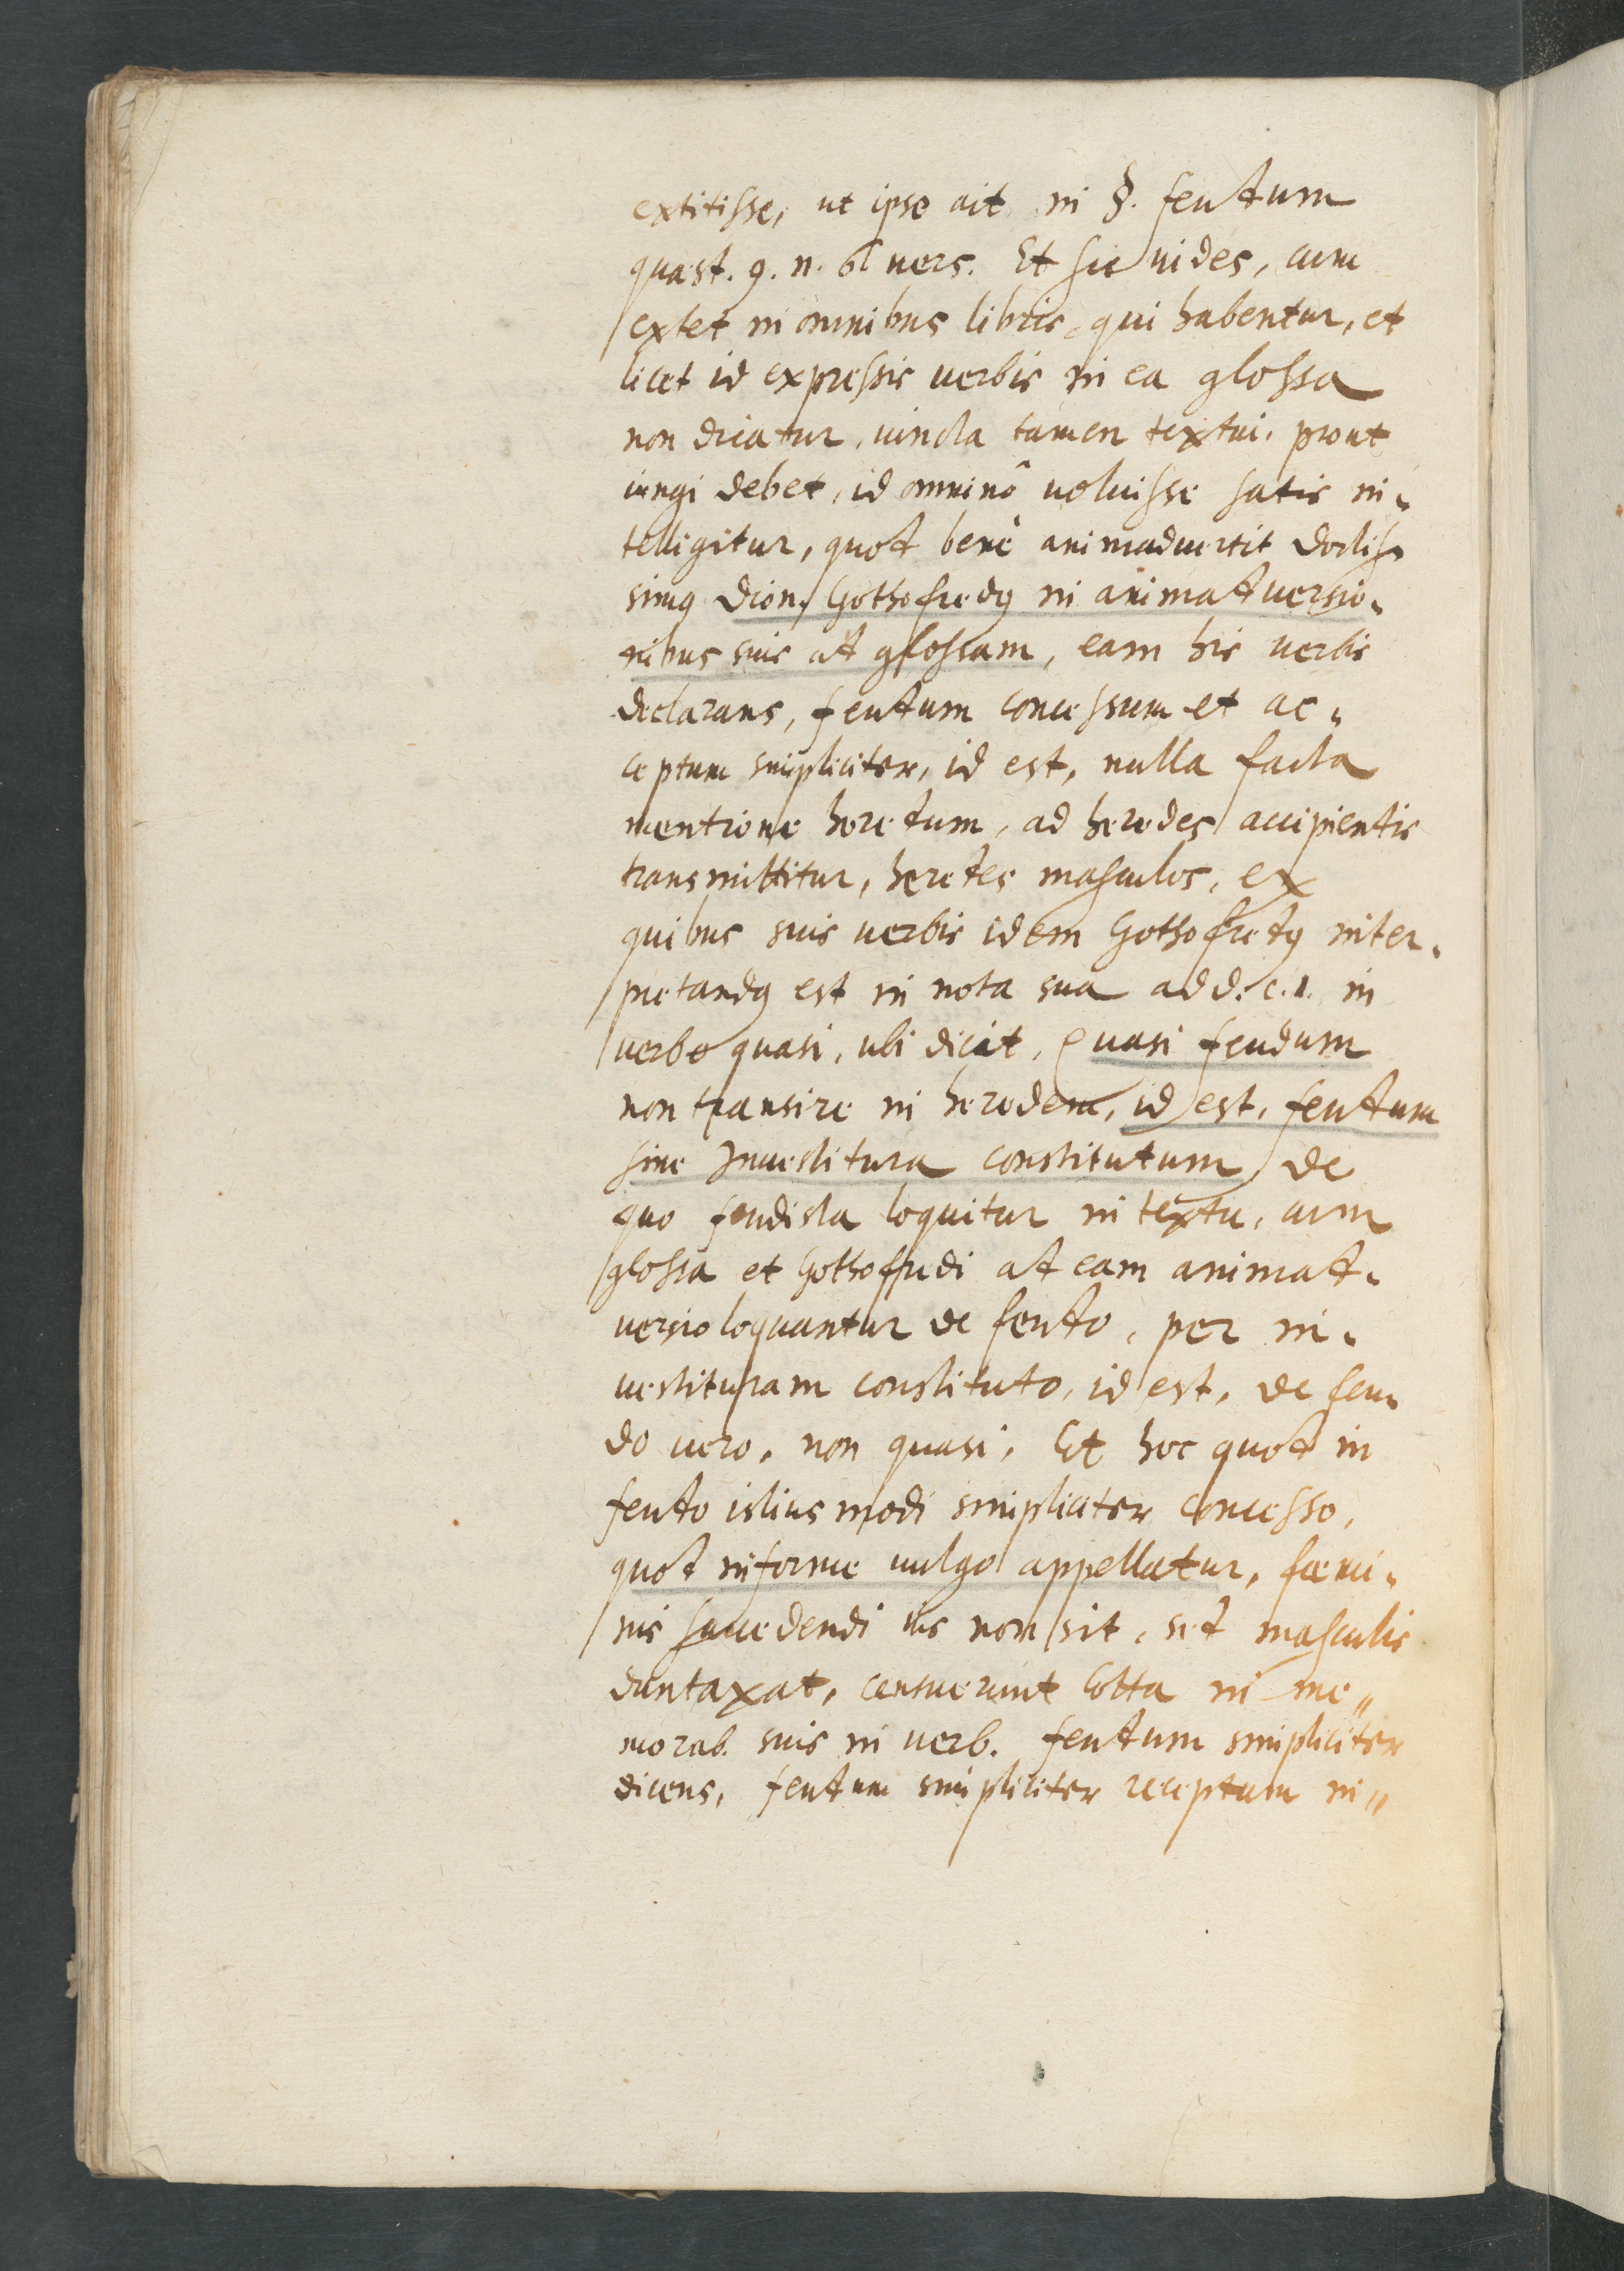 extitisse, ut ipse ait in §. feudum
quæst. 9. n. 61 uers. Et sic uides, cum
extet in omnibus libris, qui habentur, et
licet id expressis uerbis in ea glossa
non dicatur, iuncta tamen textui, prout
iungi debet, id omninô uoluisse satis in-
telligitur, quod benè animaduertit doctis-
simꝰ Dion. Gothofredꝰ in animaduersio-
nibus suis ad glossam, eam his uerbis
declarans, feudum concessum et ac-
ceptum simpliciter, id est, nulla facta
mentione heredum, ad heredes accipientis
transmittitur, heredes masculos, ex
quibus suis uerbis idem Gothofredꝰ inter-
pretandꝰ est in nota sua ad d. c. 1. in
uerbo quasi, ubi dicit, Quasi feudum
non transire in heredem, id est, feudum
sine Inuestitura constitutum de
quo feudista loquitur in textu, cum
glossa et Gothoffredi ad eam animad-
uersio loquantur de feudo, per in-
uestituram constituto, id est, de feu-
do uero, non quasi, Et hoc quod in
feudo istius modi simpliciter concesso,
quod informe uulgo appellatur, fœmi-
nis succedendi ius non sit, sed masculis
duntaxat, censuerunt Cotta in me-
morab. suis in uerb. feudum simpliciter
dicens, feudum simpliciter receptum in-